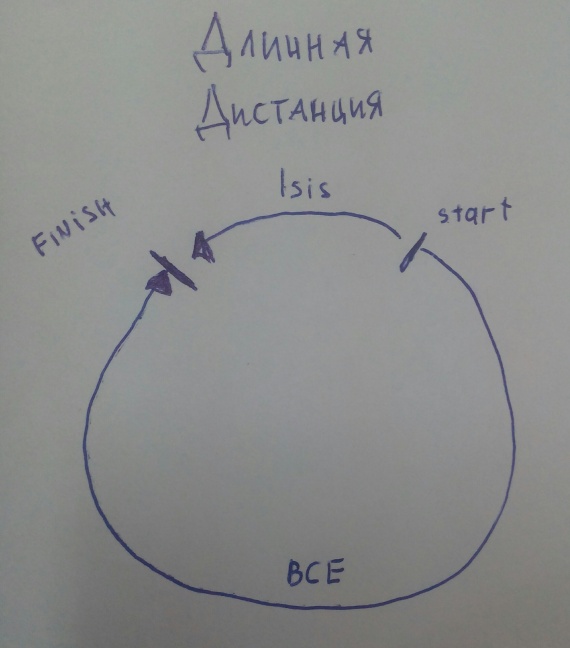 Длинная
Дистанция
Isis
start
FiNiSH
ВСЕ